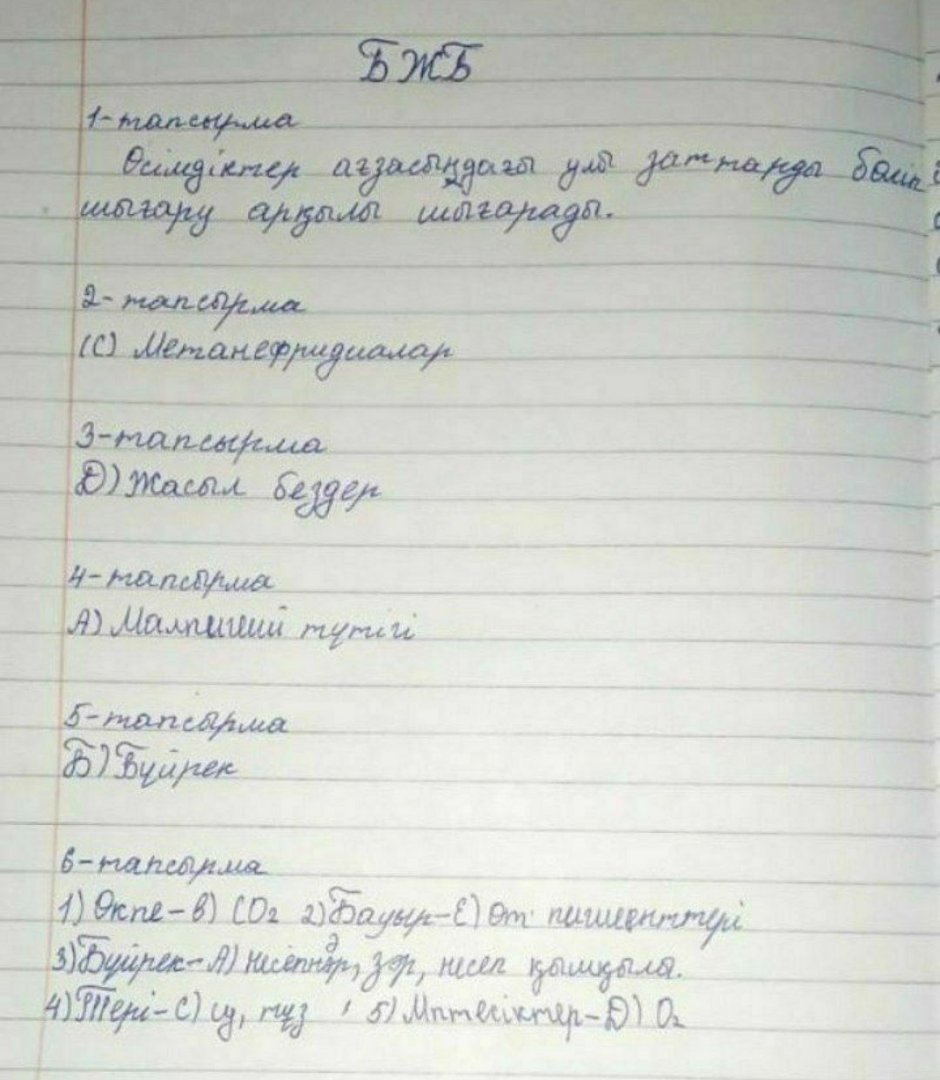 БЖБ
1-тапсырма
Өсімдіктер ағзасындағы улы заттарды бөліп
шығару арқылы шығарады.
2-тапсырма
(С) Метанефридиалар
3-тапсырма
D) Жасыл бездер
4-тапсырма
А) Малпигий түтігі
5-тапсырма
Б) Бүйрек
6-тапсырма
1) Өкпе-В) CO2 2) Бауыр-Е) Өт пигменттері
3) Бүйрек-А) несепнәр, зәр, несеп қышқылы.
4) Тері-С) су, тұз, 5) Лптесіктер-D) O2